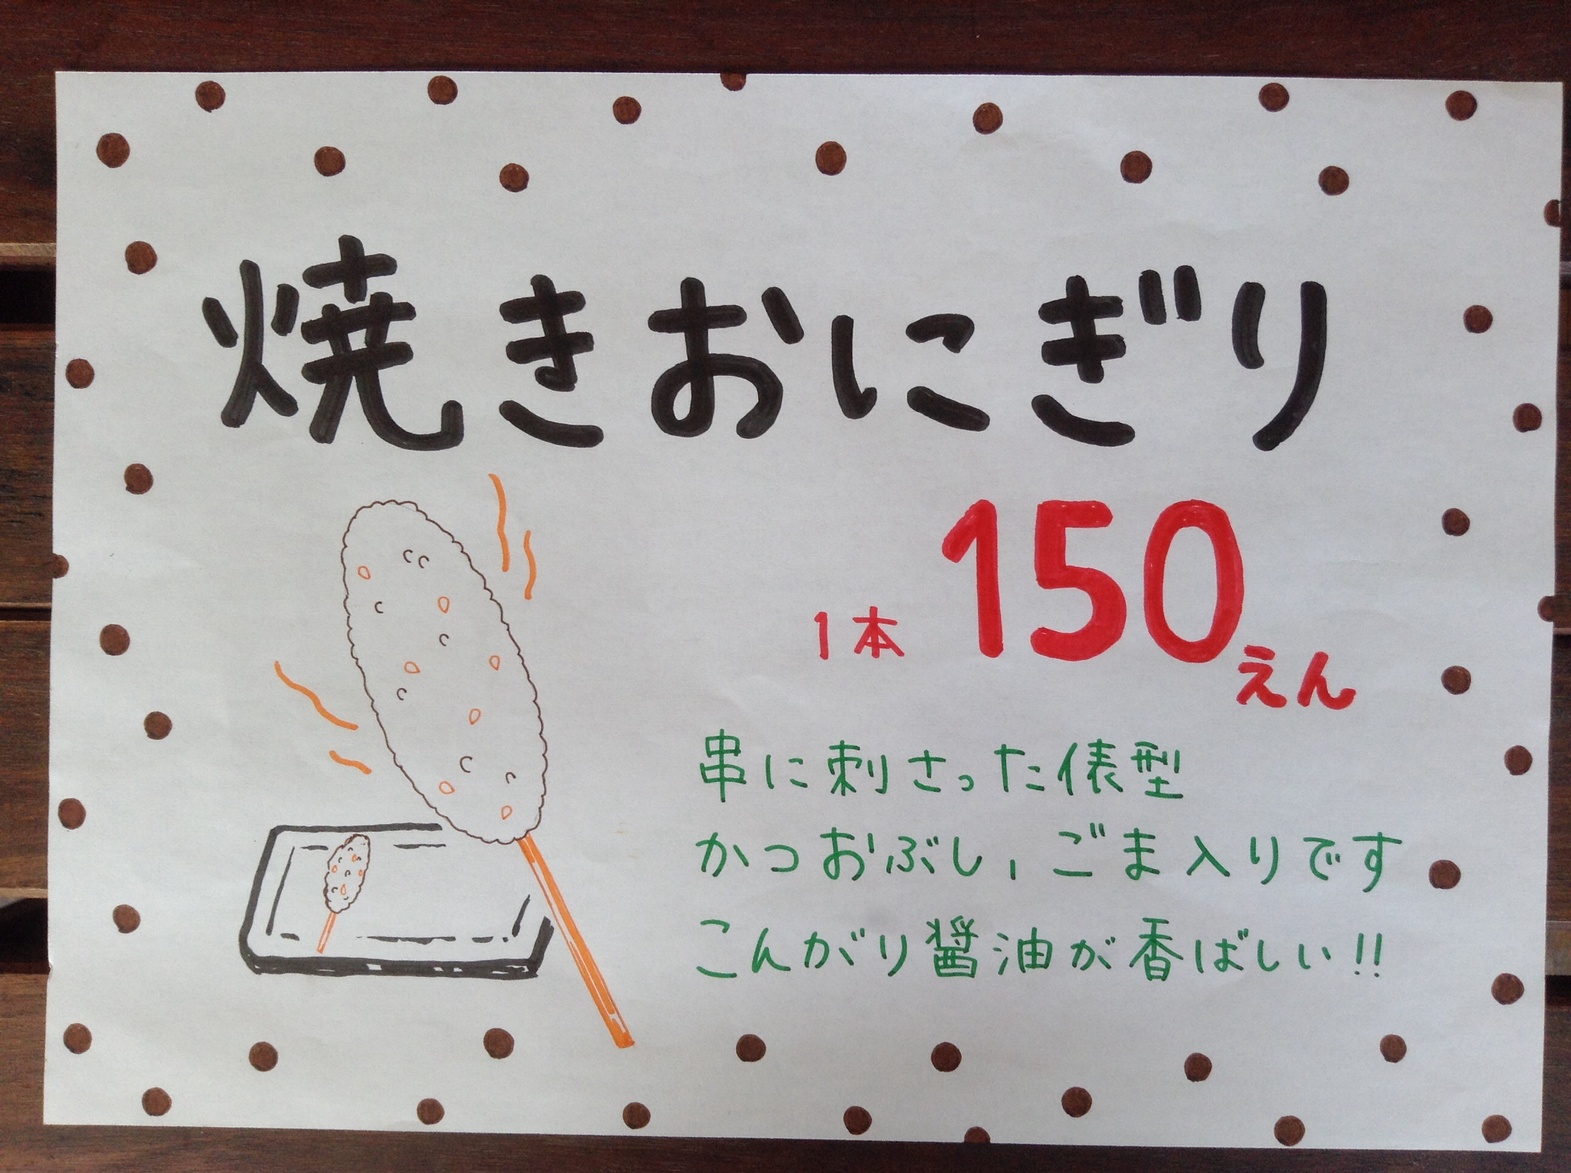 焼きおにぎり
1本 150えん
串に刺さった俵型
かつおぶし, ごま入りです
こんがり醤油が香ばしい!!